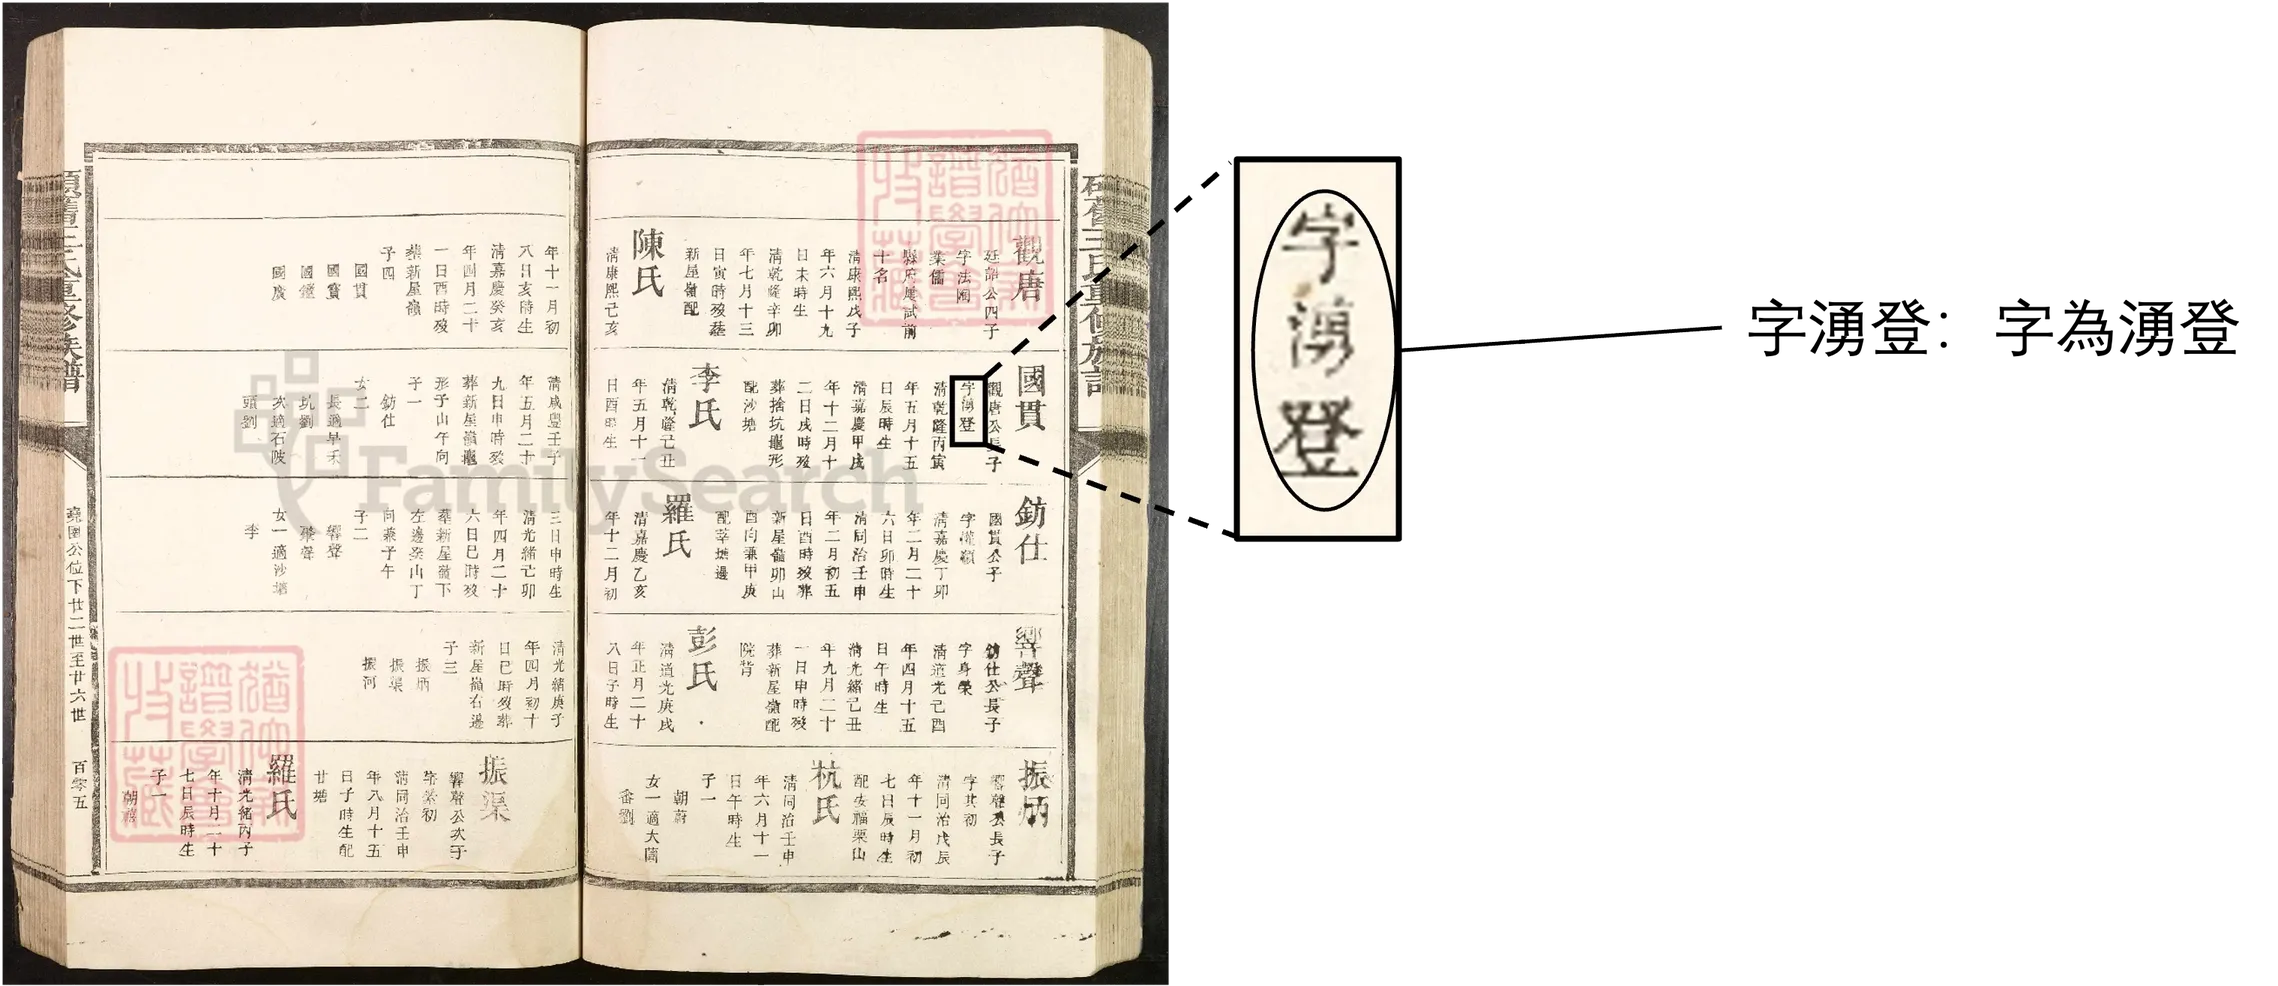 觀唐
廷詔公四子
字法閫
業儒
縣府屢試前
十名
清康熙戊子
年六月十九
日未時生
清乾隆辛卯
年七月十三
日寅時歿葬
新屋嶺配
陳氏
清康熙己亥
年十一月初
八日亥時生
清嘉慶癸亥
年四月二十
一日酉時歿
葬新屋嶺
子四
國貫
國寶
國鐘
國廣
國貫
觀唐公長子
字湧登
清乾隆丙寅
年五月十五
日辰時生
清嘉慶甲戌
年十二月十
二日戌時歿
葬捨坑龜形
配沙塘
李氏
清乾隆己丑
年五月十一
日酉時生
清咸豐壬子
年五月二十
九日申時歿
葬新屋嶺龜
形子山午向
子一
鈁仕
女二
長適早禾
坑劉
次適石陂
頭劉
鈁仕
國貫公子
清嘉慶丁卯
年二月二十
六日卯時生
清同治壬申
年二月初五
日酉時歿葬
新屋嶺卯山
酉向兼甲庚
配莘塘邊
羅氏
清嘉慶乙亥
年十二月初
三日申時生
清光緒己卯
年四月二十
六日巳時歿
葬新屋嶺下
左邊癸山丁
向兼子午
子二
響聲
女一適沙塘
李
響聲
鈁仕公長子
字身榮
清道光己酉
年四月十五
日午時生
清光緒己丑
年九月二十
一日申時歿
葬新屋嶺配
院背
彭氏
清道光庚戌
年正月二十
八日子時生
清光緒庚子
年四月初十
日巳時歿葬
新屋嶺右邊
子三
振炳
振渠
振河
振炳
響聲公長子
字其初
清同治戊辰
年十一月初
七日辰時生
配安福栗山
杭氏
清同治壬申
年六月十一
日午時生
子一
朝蔚
女一適大園
背劉
振渠
響聲公次子
清同治壬申
年八月十五
日子時生配
廿塘
羅氏
清光緒丙子
年十月二十
七日辰時生
子一
堯圍公位下廿二世至廿六世
百零五
FamilySearch
字湧登
字湧登：字為湧登